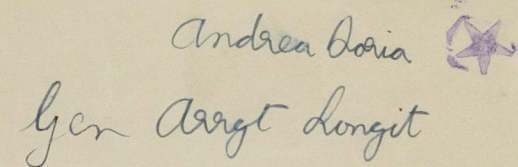 Andrea Doria
Gen Arrgt Longit